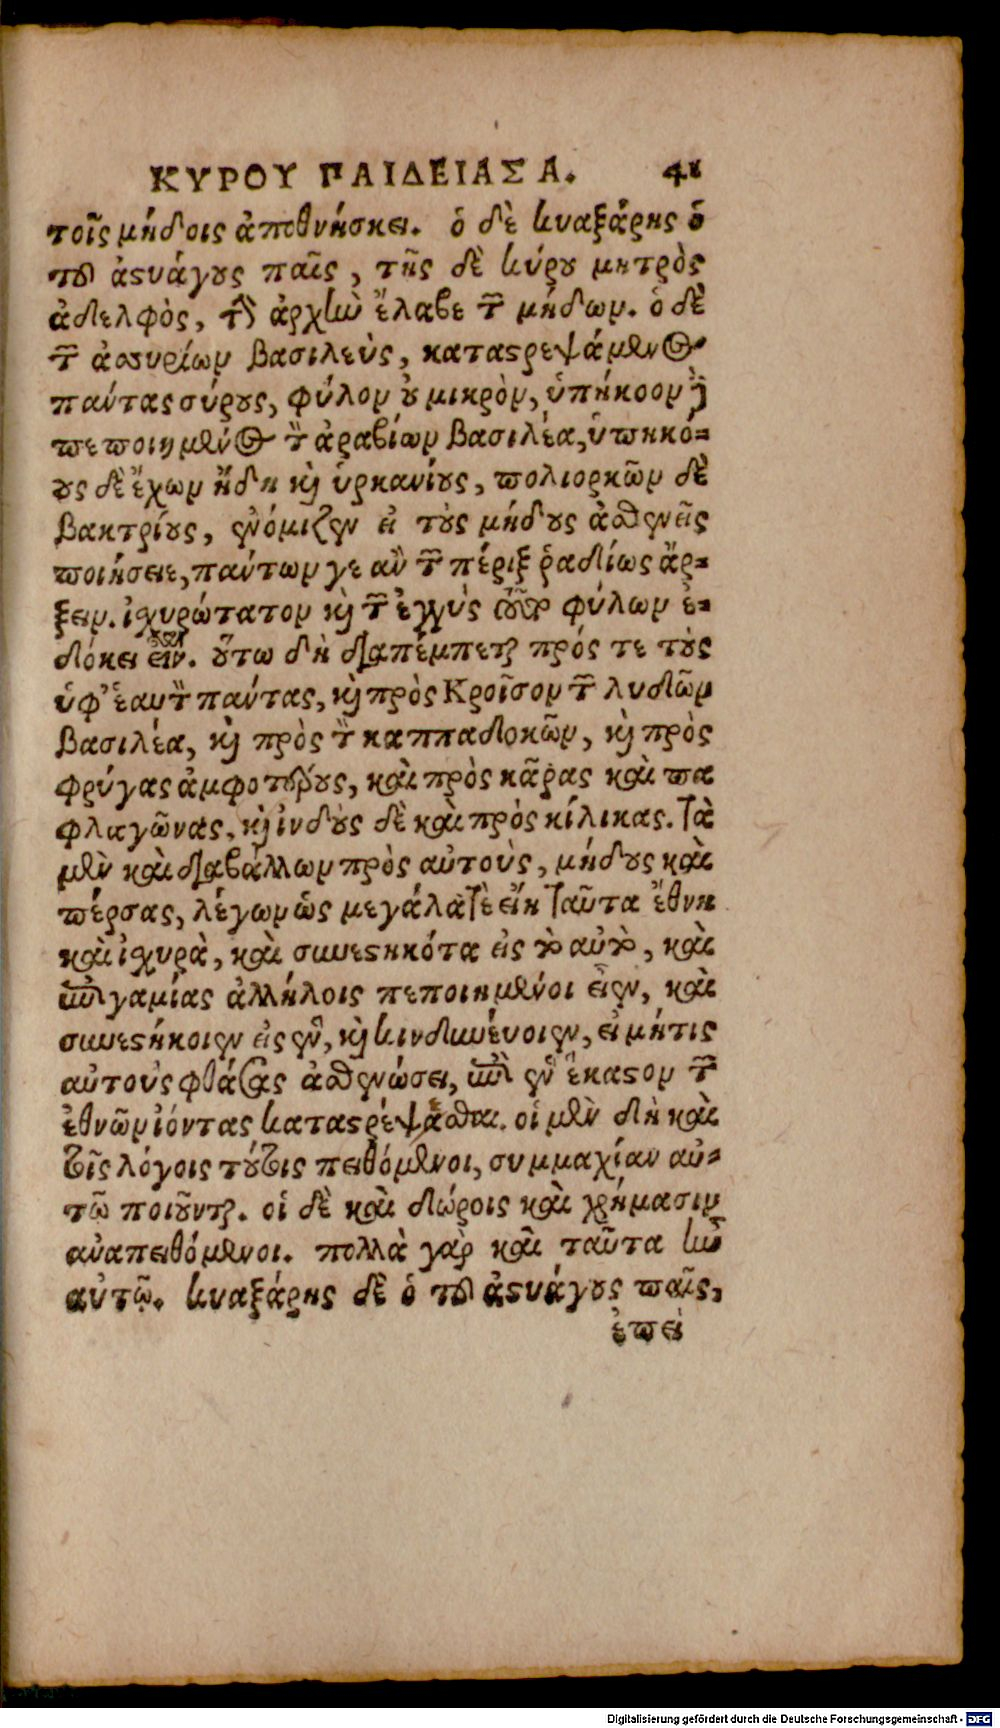 ΚΥΡΟΥ ΠΑΙΔΕΙΑΣ Α. 41
τοῖς μήδοις ἀποθνήσκει. ὁ δὲ κυαξάρης ὁ
τοῦ ἀστυάγους παῖς, τῆς δὲ κύρου μητρὸς
ἀδελφὸς, τὴν ἀρχὴν ἔλαβε τῶν μήδων. ὁ δὲ
τῶν ἀσσυρίων βασιλεὺς, καταστρεψάμενος
πάντας σύρους, φύλον οὐ μικρὸν, ὑπήκοον δὲ
πεποιημένος τὸν ἀραβίων βασιλέα, ὑπηκό-
ους δὲ ἔχων ἤδη καὶ ὑρκανίους, πολιορκῶν δὲ
βακτρίους, ἐνόμιζεν εἰ τοὺς μήδους ἀσθενεῖς
ποιήσειε, πάντων γε ἂν τῶν πέριξ ῥαδίως ἄρ-
ξειν. ἰσχυρώτατον καὶ τῶν ἐγγὺς τοῦτο φύλων ἐ-
δόκει εἶναι. οὕτω δὴ διαπέμπεται πρός τε τοὺς
ὑφ' ἑαυτὸν πάντας, καὶ πρὸς Κροῖσον τὸν λυδῶν
βασιλέα, καὶ πρὸς τὸν καππαδοκῶν, καὶ πρὸς
φρύγας ἀμφοτέρους, καὶ πρὸς κᾶρας καὶ πα
φλαγῶνας, καὶ ἰνδοὺς δὲ καὶ πρὸς κίλικας. τὰ
μὲν καὶ διαβάλλων πρὸς αὐτοὺς, μήδους καὶ
πέρσας, λέγων ὡς μεγάλα τὲ εἴη ταῦτα ἔθνη
καὶ ἰσχυρὰ, καὶ συνεστηκότα εἰς τὸ αὐτὸ, καὶ
ἐπιγαμίας ἀλλήλοις πεποιημένοι εἶεν, καὶ
συνεστήκοιεν εἰς ἓν, καὶ κινδυνεύοιεν, εἰ μήτις
αὐτοὺς φθάσας ἀσθενώσει, ἐπὶ ἓν ἕκαστον τῶν
ἐθνῶν ἰόντας καταστρέψασθαι. οἱ μὲν δὴ καὶ
τοῖς λόγοις τούτοις πειθόμενοι, συμμαχίαν αὐ-
τῷ ποιοῦνται. οἱ δὲ καὶ δώροις καὶ χρήμασιν
ἀναπειθόμενοι. πολλὰ γὰρ καὶ ταῦτα ἦν
αὐτῷ. κυαξάρης δὲ ὁ τοῦ ἀστυάγους παῖς,
ἐπεὶ
Digitalisierung gefördert durch die Deutsche Forschungsgemeinschaft - DFG